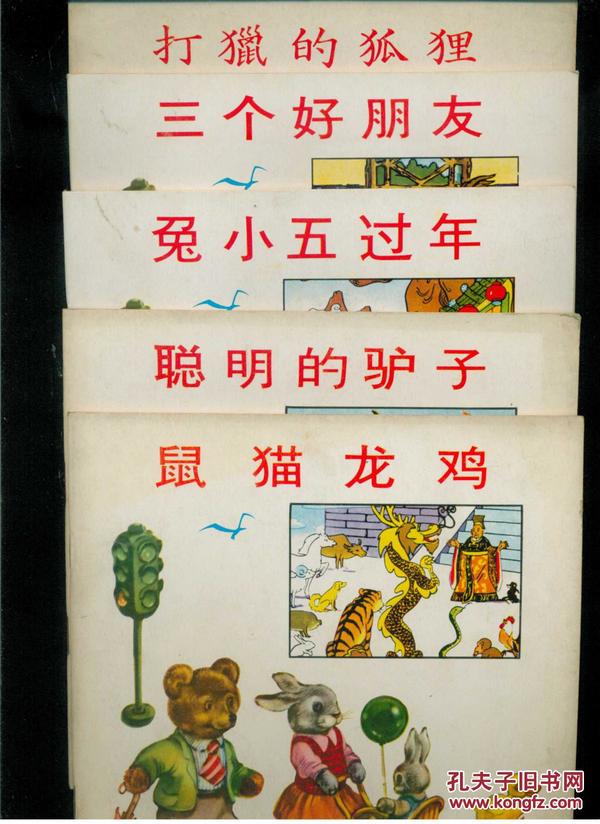 打獵的狐狸
三个好朋友
兔小五过年
聪明的驴子
鼠猫龙鸡
孔夫子旧书网
www.kongfz.com